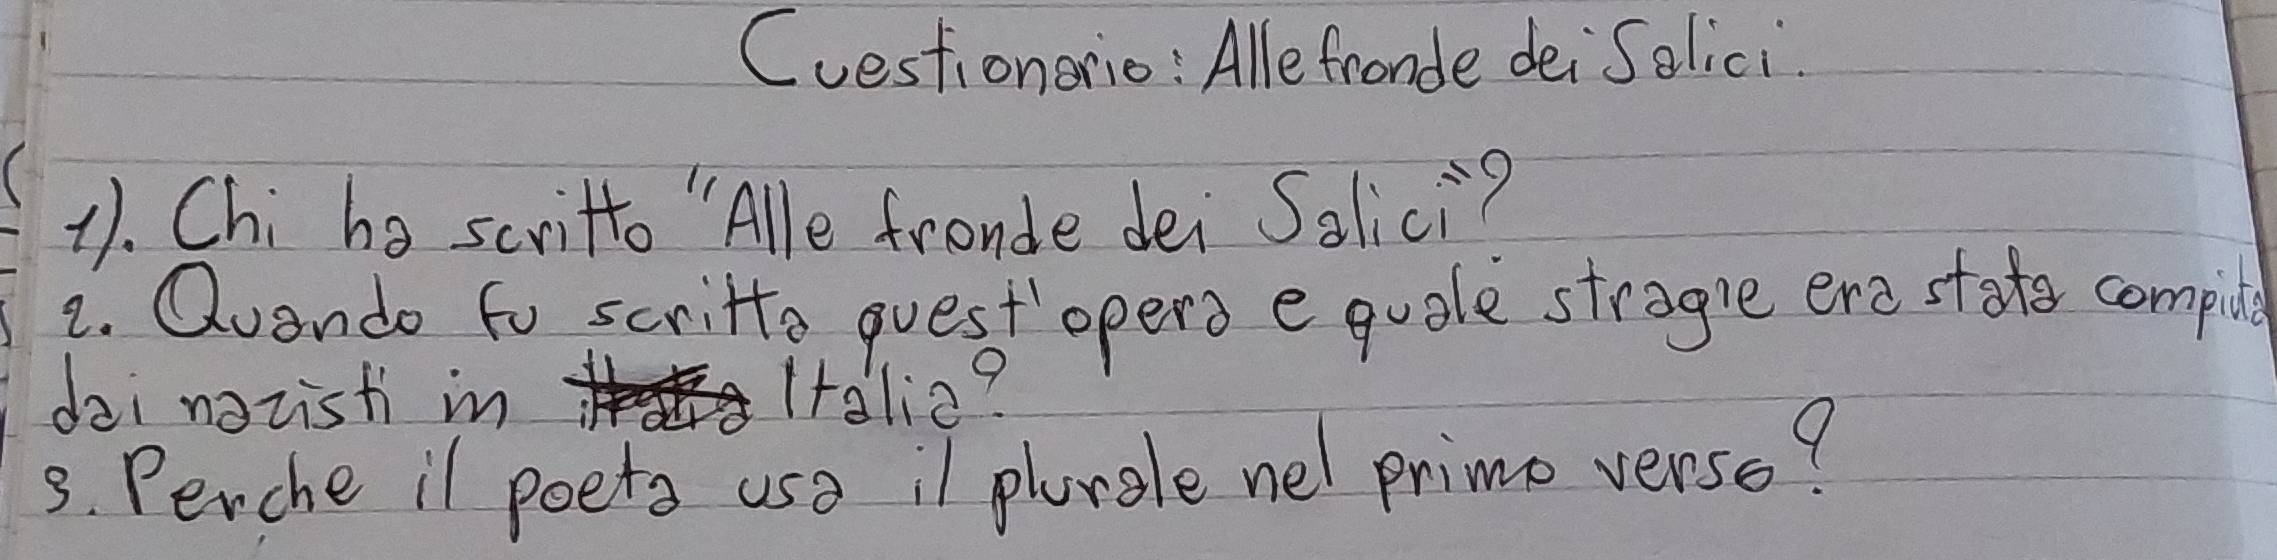 Cuestionario: Alle fronde dei Salici.
1). Chi ha scritto "Alle fronde dei Salici"?
2. Quando fu scritta quest'opera e quale stragie era stata compiuta
dai nazisti in Italia?
3. Perche il poeta usa il plurale nel primo verso?